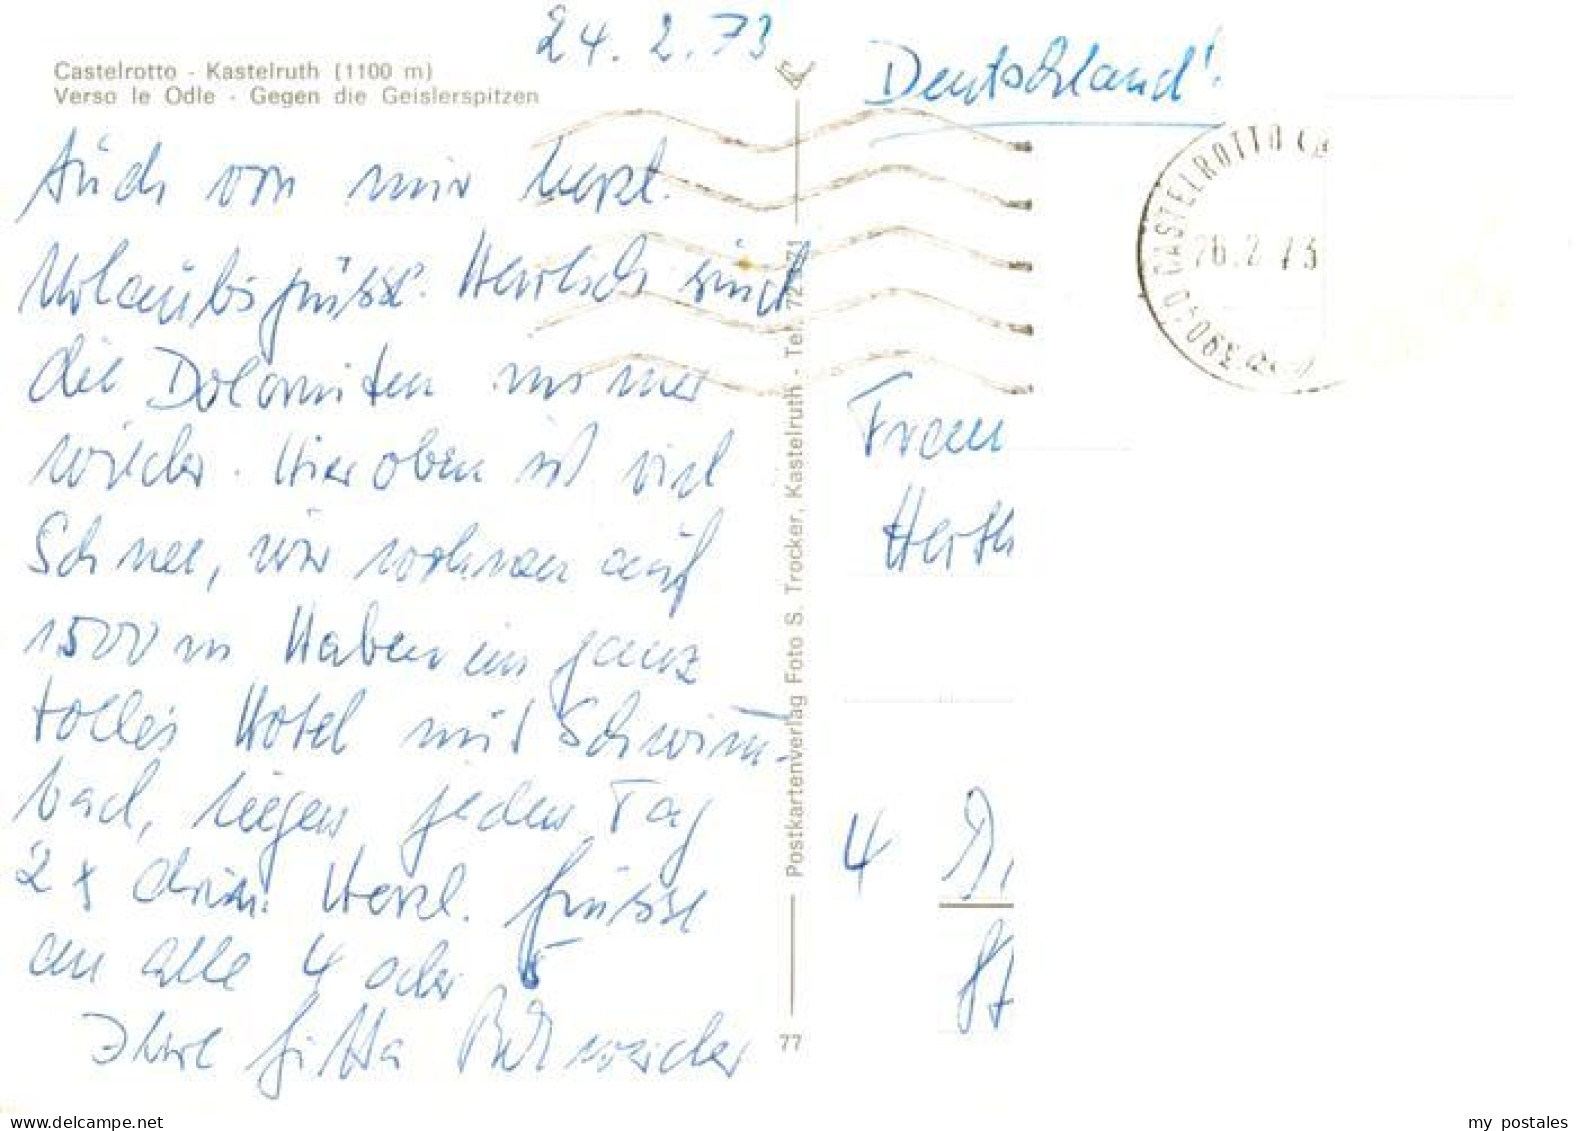 24. 2. 73
Castelrotto - Kastelruth (1100 m)
Verso le Odle - Gegen die Geislerspitzen
Deutschland!
Auch von mir herzl.
Urlaubsgrüsse. Herrlich sind
die Dolomiten immer
wieder. Hier oben ist viel
Schnee, wir wohnen auf
1500 m Haben ein ganz
tolles Hotel mit Schwimm-
bad, liegen jeden Tag
2 x drin. Herzl. Grüsse
an alle 4 oder 5
Ihre Gitta
Postkartenverlag Foto S. Trocker, Kastelruth - Tel. 72
77
CASTELROTTO
26.2.73
Frau
Herth
4 D